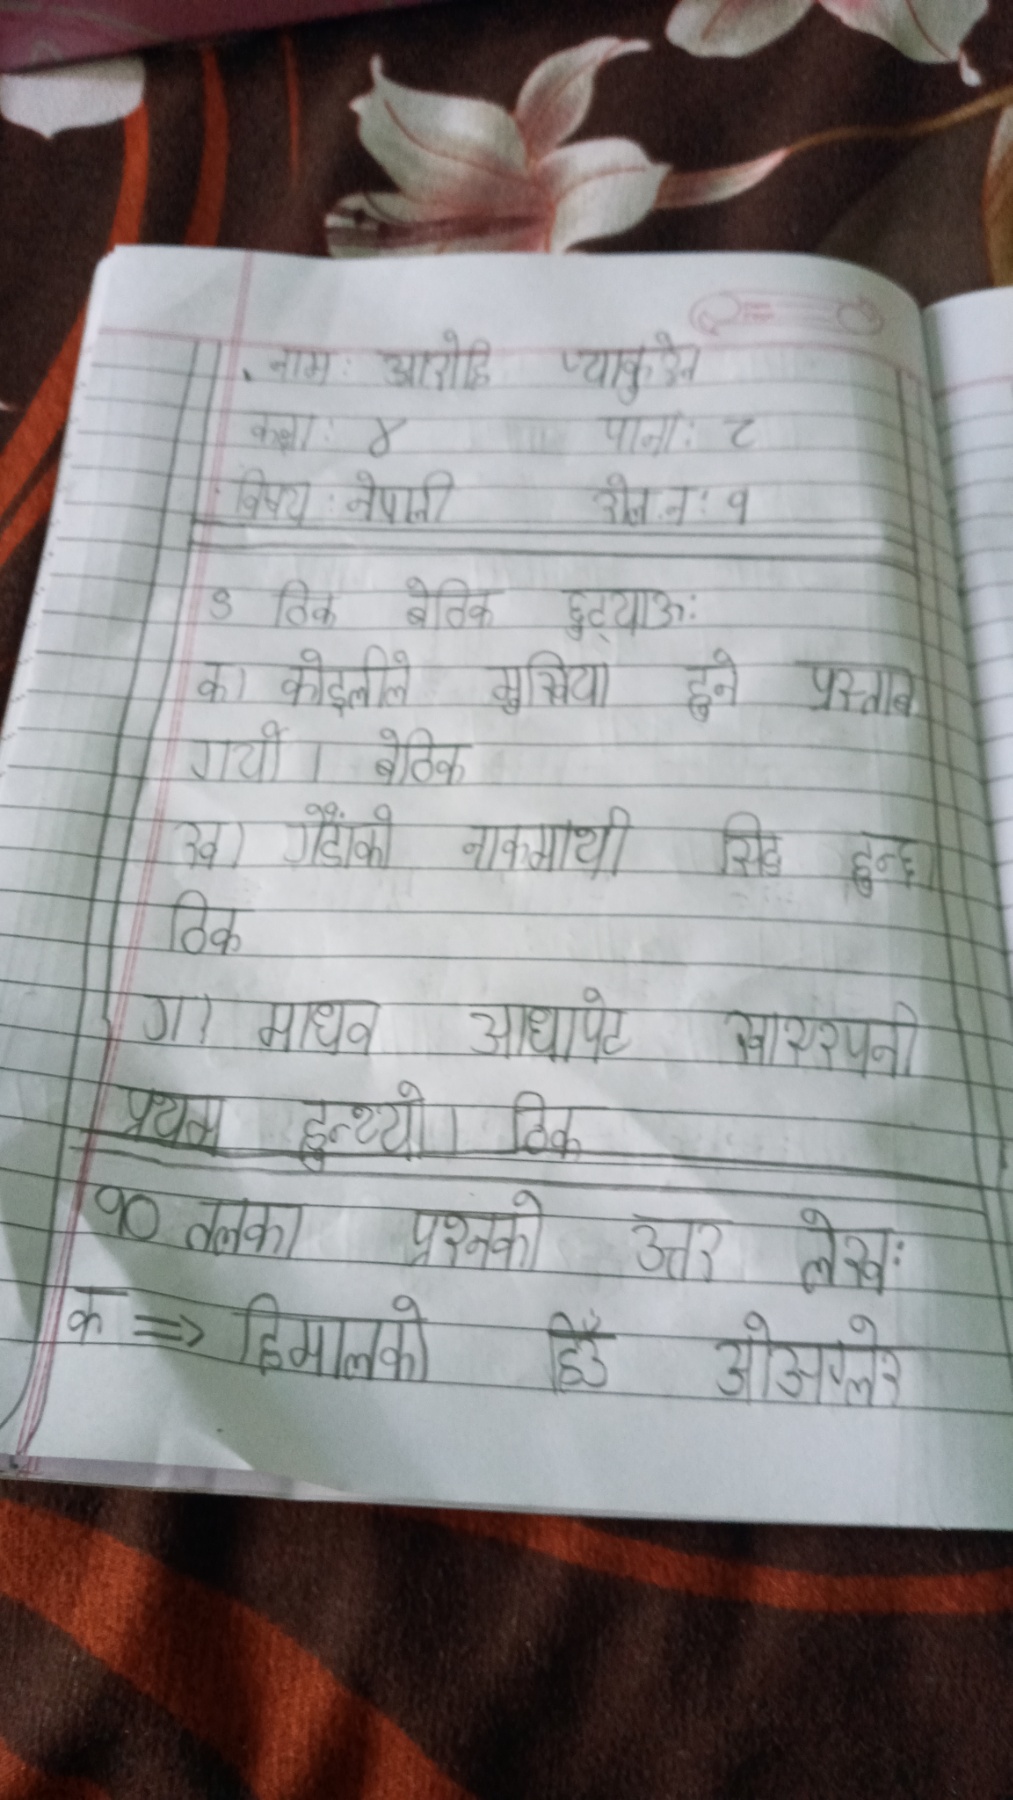 नाम: आरोहि प्याकुरेल
कक्षा: ४ पाना: ८
विषय: नेपाली रोल.न: १
९ ठिक बेठिक छुट्याऊ:
क। कोइलीले मुखिया हुने प्रस्ताब
गर्यो। बेठिक
ख। गैंडाको नाकमाथी सिङ हुन्छ।
ठिक
ग। माधव आधापेट खाएरपनी
प्रथम हुन्थ्यो। ठिक
१० तलका प्रश्नको उत्तर लेख:
क ⇒ हिमालको हिउँ